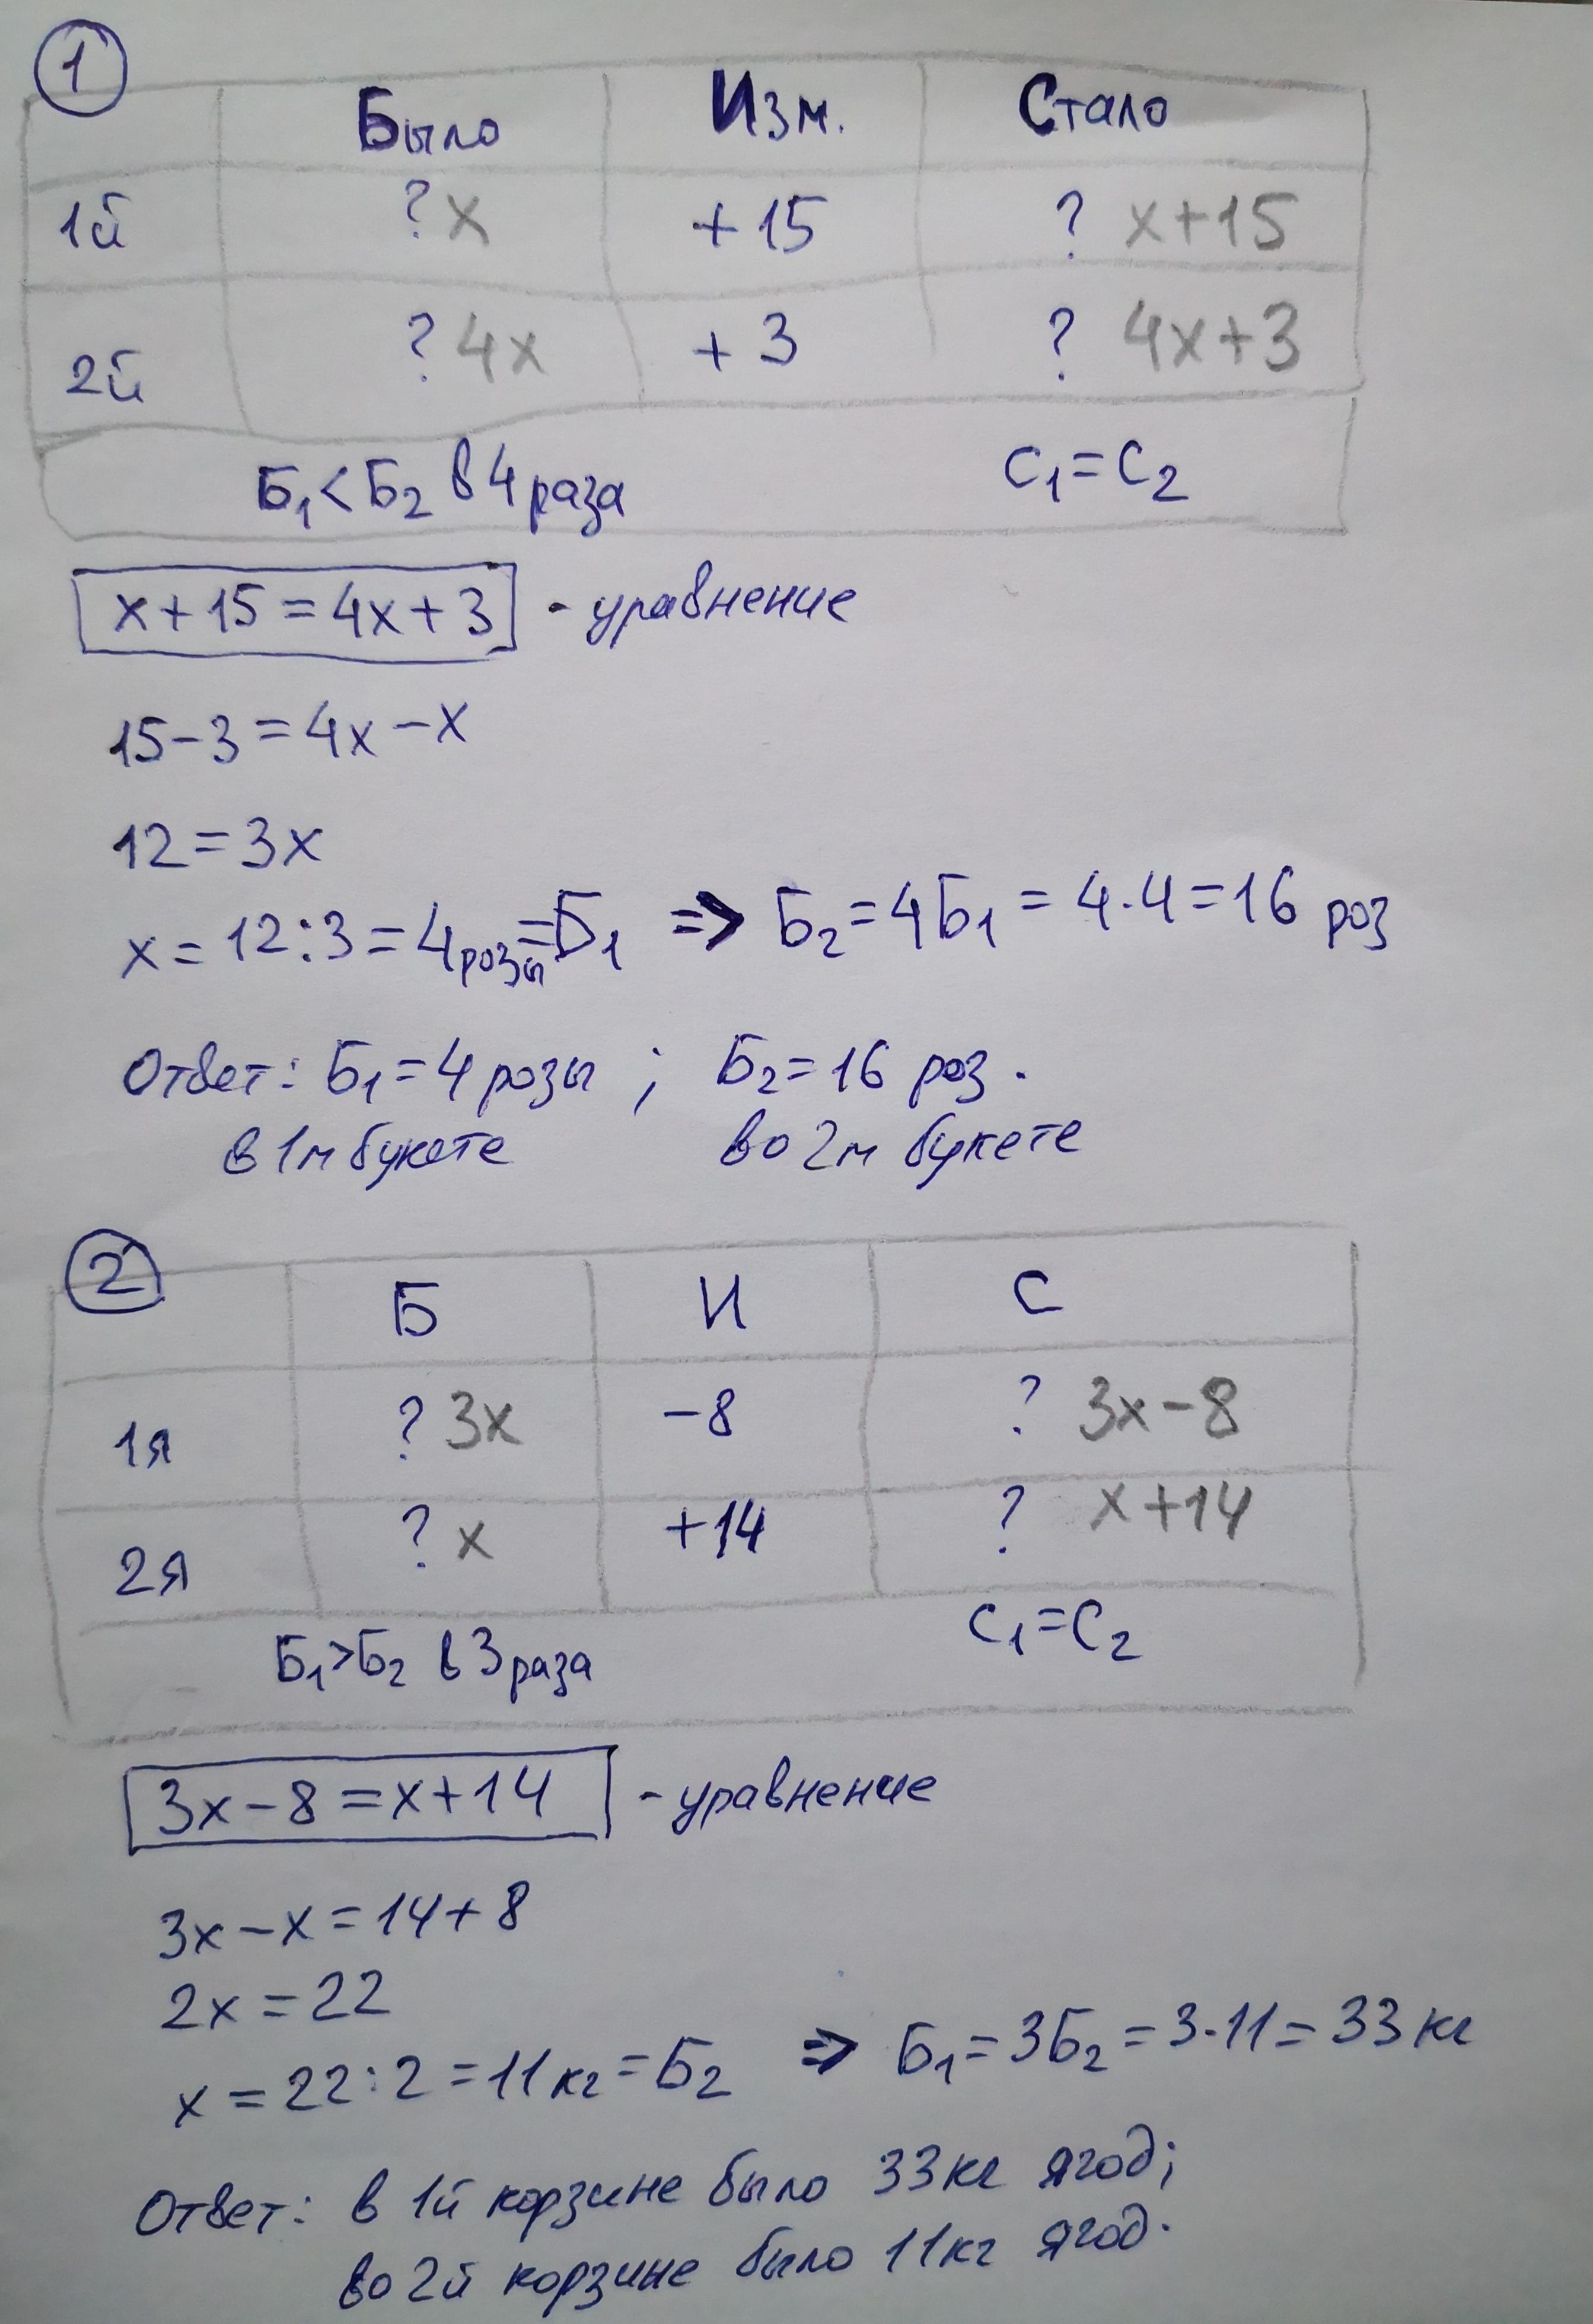 1
Было Изм. Стало
1й ? x + 15 ? x+15
2й ? 4x + 3 ? 4x+3
Б₁<Б₂ в 4 раза С₁=С₂
x+15=4x+3 - уравнение
15-3=4x-x
12=3x
x=12:3=4розы=Б₁ => Б₂=4Б₁=4·4=16 роз
Ответ: Б₁=4 розы ; Б₂=16 роз.
в 1м букете во 2м букете
2
Б И С
1я ? 3x -8 ? 3x-8
2я ? x +14 ? x+14
Б₁>Б₂ в 3 раза С₁=С₂
3x-8=x+14 - уравнение
3x-x=14+8
2x=22
x=22:2=11кг=Б₂ => Б₁=3Б₂=3·11=33кг
Ответ: в 1й корзине было 33кг ягод;
во 2й корзине было 11кг ягод.